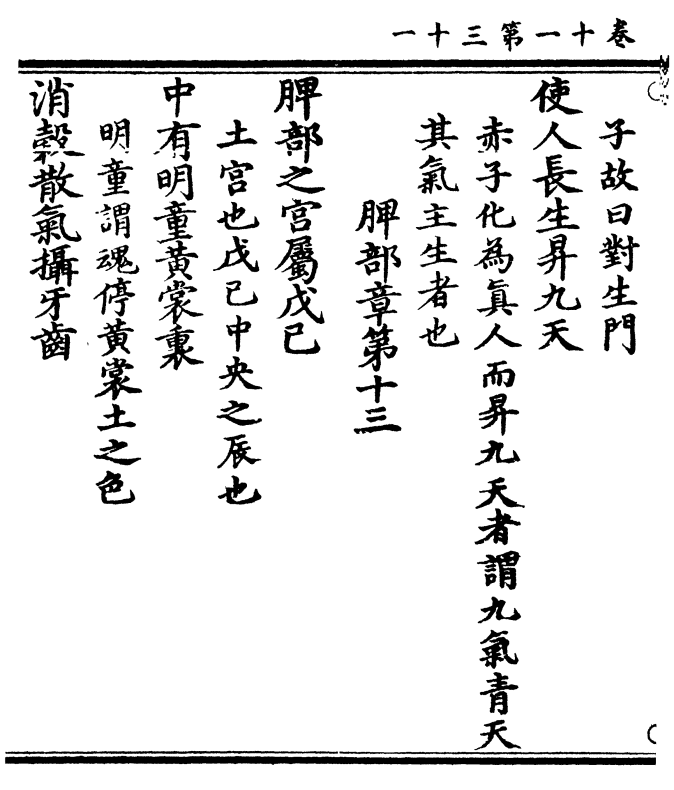 卷十一第三十一
子故曰對生門
使人長生昇九天
赤子化為眞人而昇九天者謂九氣青天
其氣主生者也
脾部章第十三
脾部之宮屬戊己
土宮也戊己中央之辰也
中有明童黃裳裏
明童謂魂停黃裳土之色
消穀散氣攝牙齒